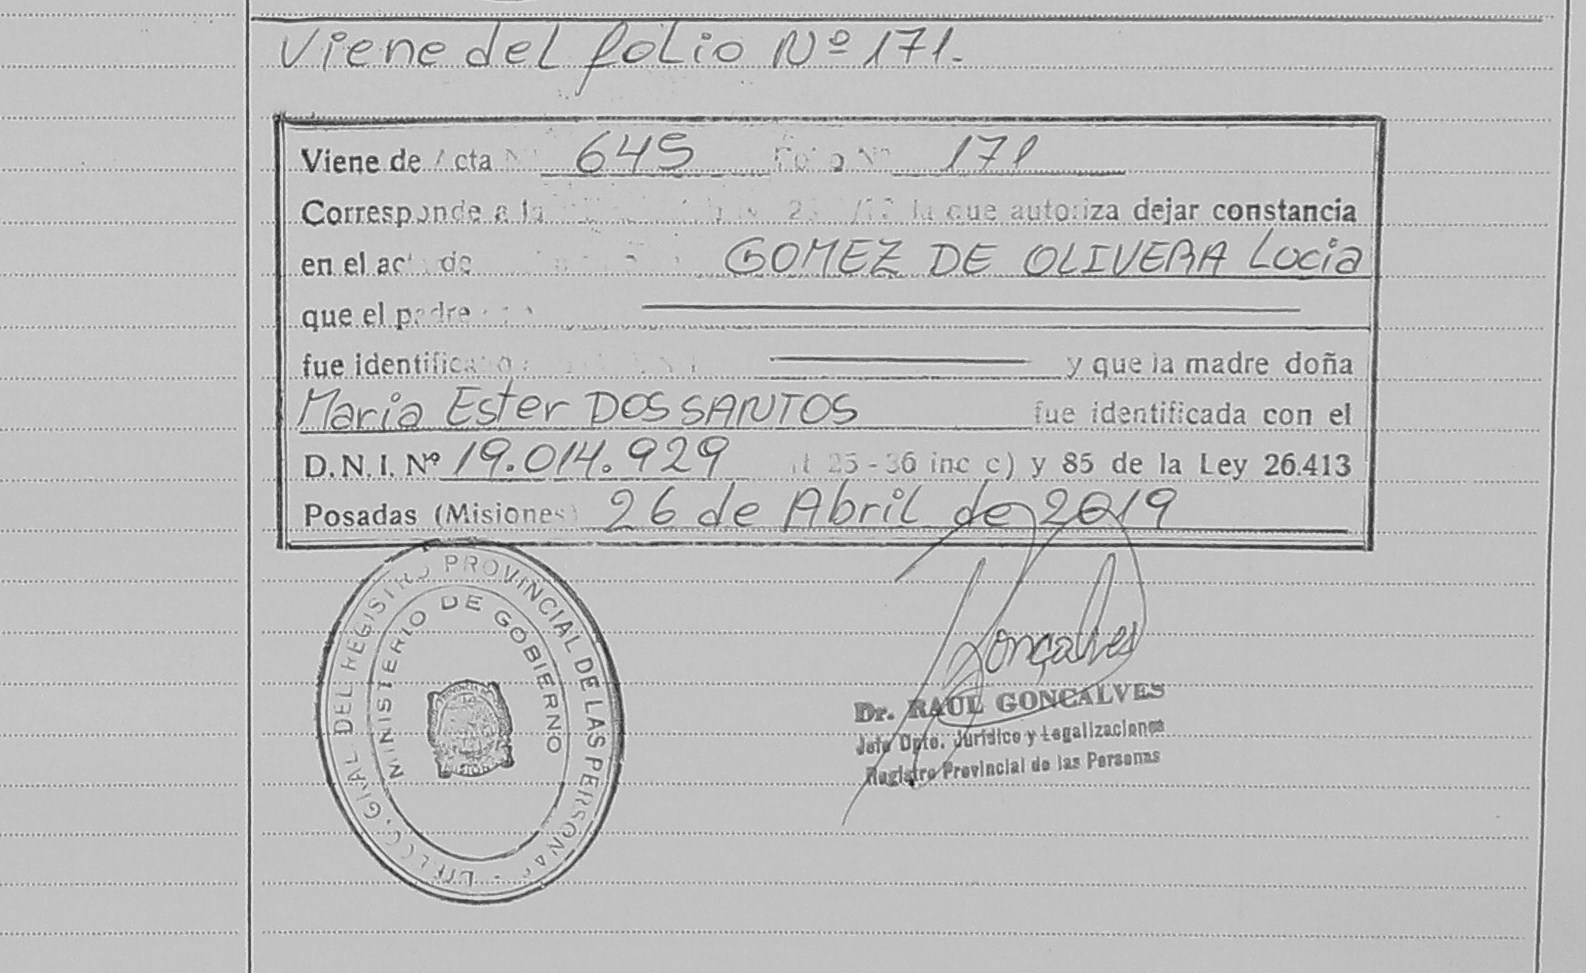 Viene del folio Nº 171.
Viene de Acta Nº 645 Folio Nº 171
Corresponde a la la que autoriza dejar constancia
en el acta de GOMEZ DE OLIVERA Lucia
que el padre
fue identificado y que la madre doña
Maria Ester DOS SANTOS fue identificada con el
D.N.I. Nº 19.014.929 25-36 inc c) y 85 de la Ley 26.413
Posadas (Misiones) 26 de Abril de 2019
DEL REGISTRO PROVINCIAL DE LAS PERSONAS
MINISTERIO DE GOBIERNO
Gonçalves
Dr. RAUL GONCALVES
Jefe Dpto. Jurídico y Legalizaciones
Registro Provincial de las Personas